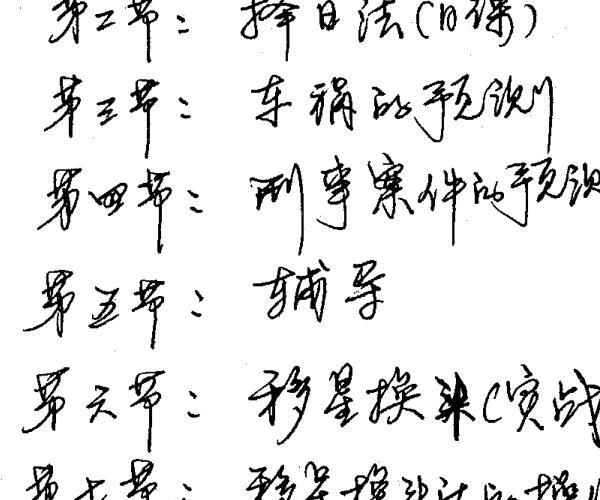 第二节：择日法（日课）
第三节：车祸的预测
第四节：刑事案件的预测
第五节：辅导
第六节：移星换斗（实战
第七节：移星换斗法的